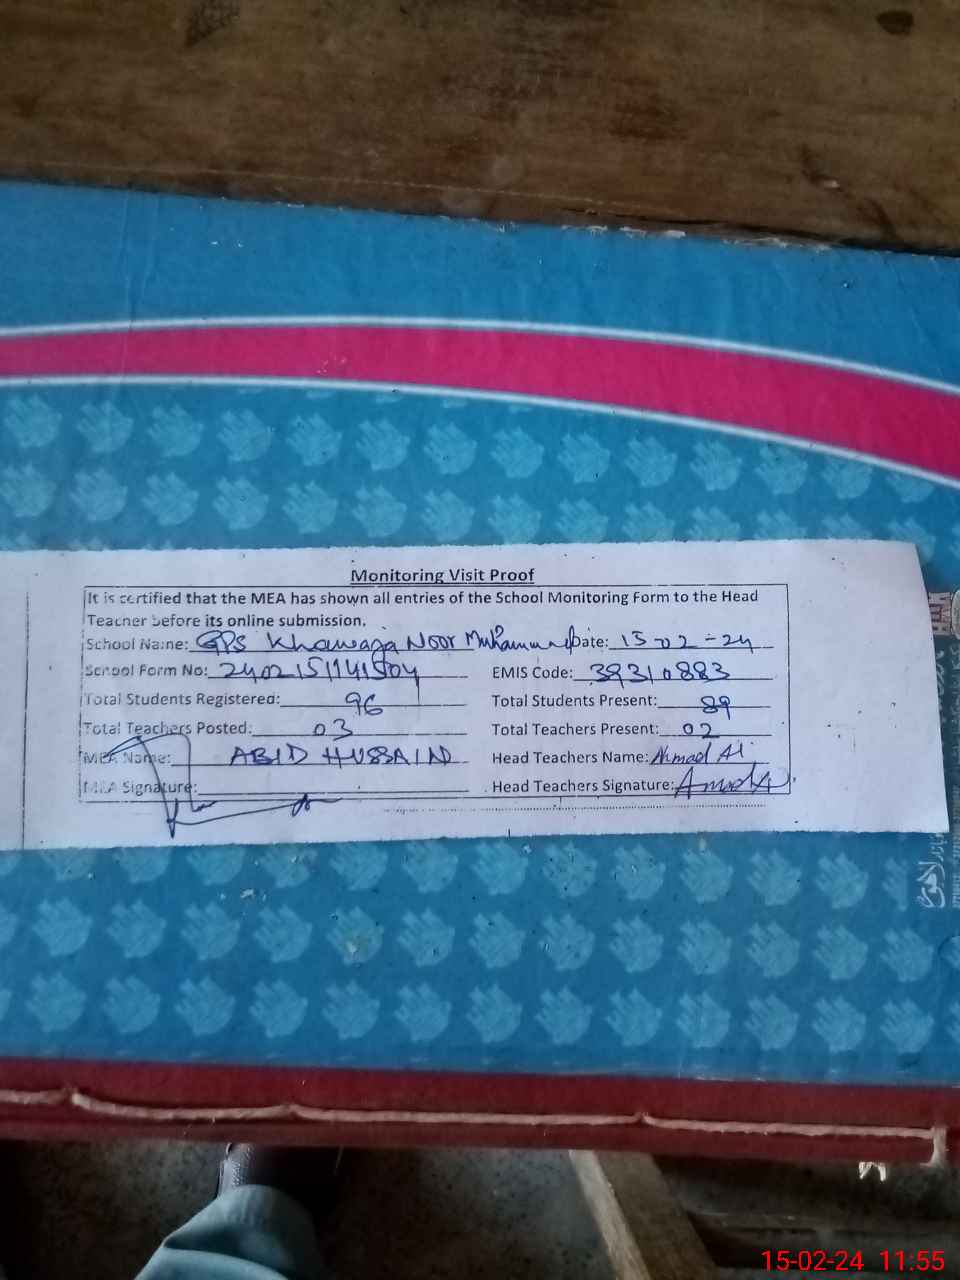 Monitoring Visit Proof
It is certified that the MEA has shown all entries of the School Monitoring Form to the Head
Teacher before its online submission.
School Name: GPS Khawaja Noor Muhammad Date: 15-02-24
School Form No: 2402151141504 EMIS Code: 39310883
Total Students Registered: 96 Total Students Present: 89
Total Teachers Posted: 03 Total Teachers Present: 02
MEA Name: ABID HUSSAIN Head Teachers Name: Ahmad Ali
MEA Signature: Head Teachers Signature:
لاہور
15-02-24 11:55